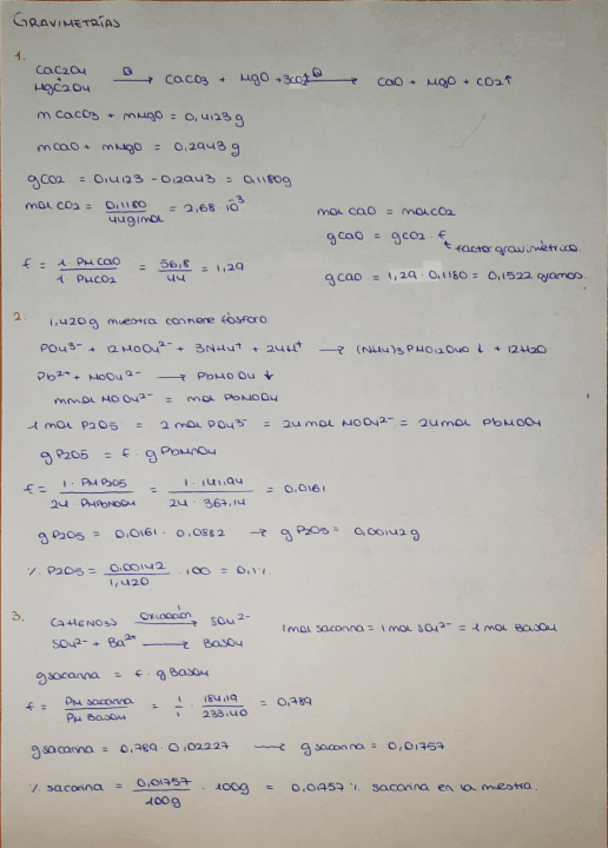 GRAVIMETRÍAS
1.
CaC2O4
MgC2O4 Q → CaCO3 + MgO + 3CO2↑ Q → CaO + MgO + CO2↑
mCaCO3 + mMgO = 0,4123 g
mCaO + mMgO = 0,2943 g
gCO2 = 0,4123 - 0,2943 = 0,1180g
mol CO2 = 0,1180 / 44g/mol = 2,68 · 10^-3
mol CaO = mol CO2
gCaO = gCO2 · f
factor gravimétrico.
f = 1 · PM CaO / 1 · PM CO2 = 56,8 / 44 = 1,29
gCaO = 1,29 · 0,1180 = 0,1522 gramos.
2.
1,420g muestra contiene fósforo
PO4^3- + 12MoO4^2- + 3NH4+ + 24H+ → (NH4)3PMo12O40 ↓ + 12H2O
Pb^2+ + MoO4^2- → PbMoO4 ↓
mmol MoO4^2- = mol PbMoO4
1 mol P2O5 = 2 mol PO4^3- = 24 mol MoO4^2- = 24 mol PbMoO4
g P2O5 = f · g PbMoO4
f = 1 · PM P2O5 / 24 · PM PbMoO4 = 1 · 141,94 / 24 · 367,14 = 0,0161
g P2O5 = 0,0161 · 0,0882 → g P2O5 = 0,00142 g
% P2O5 = 0,00142 / 1,420 · 100 = 0,1%
3.
C7H5NO3S Oxidación → SO4^2-
SO4^2- + Ba^2+ → BaSO4
1mol sacarina = 1mol SO4^2- = 1 mol BaSO4
gsacarina = f · g BaSO4
f = PM sacarina / PM BaSO4 = 1 / 1 · 184,19 / 233,40 = 0,789
gsacarina = 0,789 · 0,02227 → g sacarina = 0,01757
% sacarina = 0,01757 / 100g · 100g = 0,01757 % sacarina en la muestra.